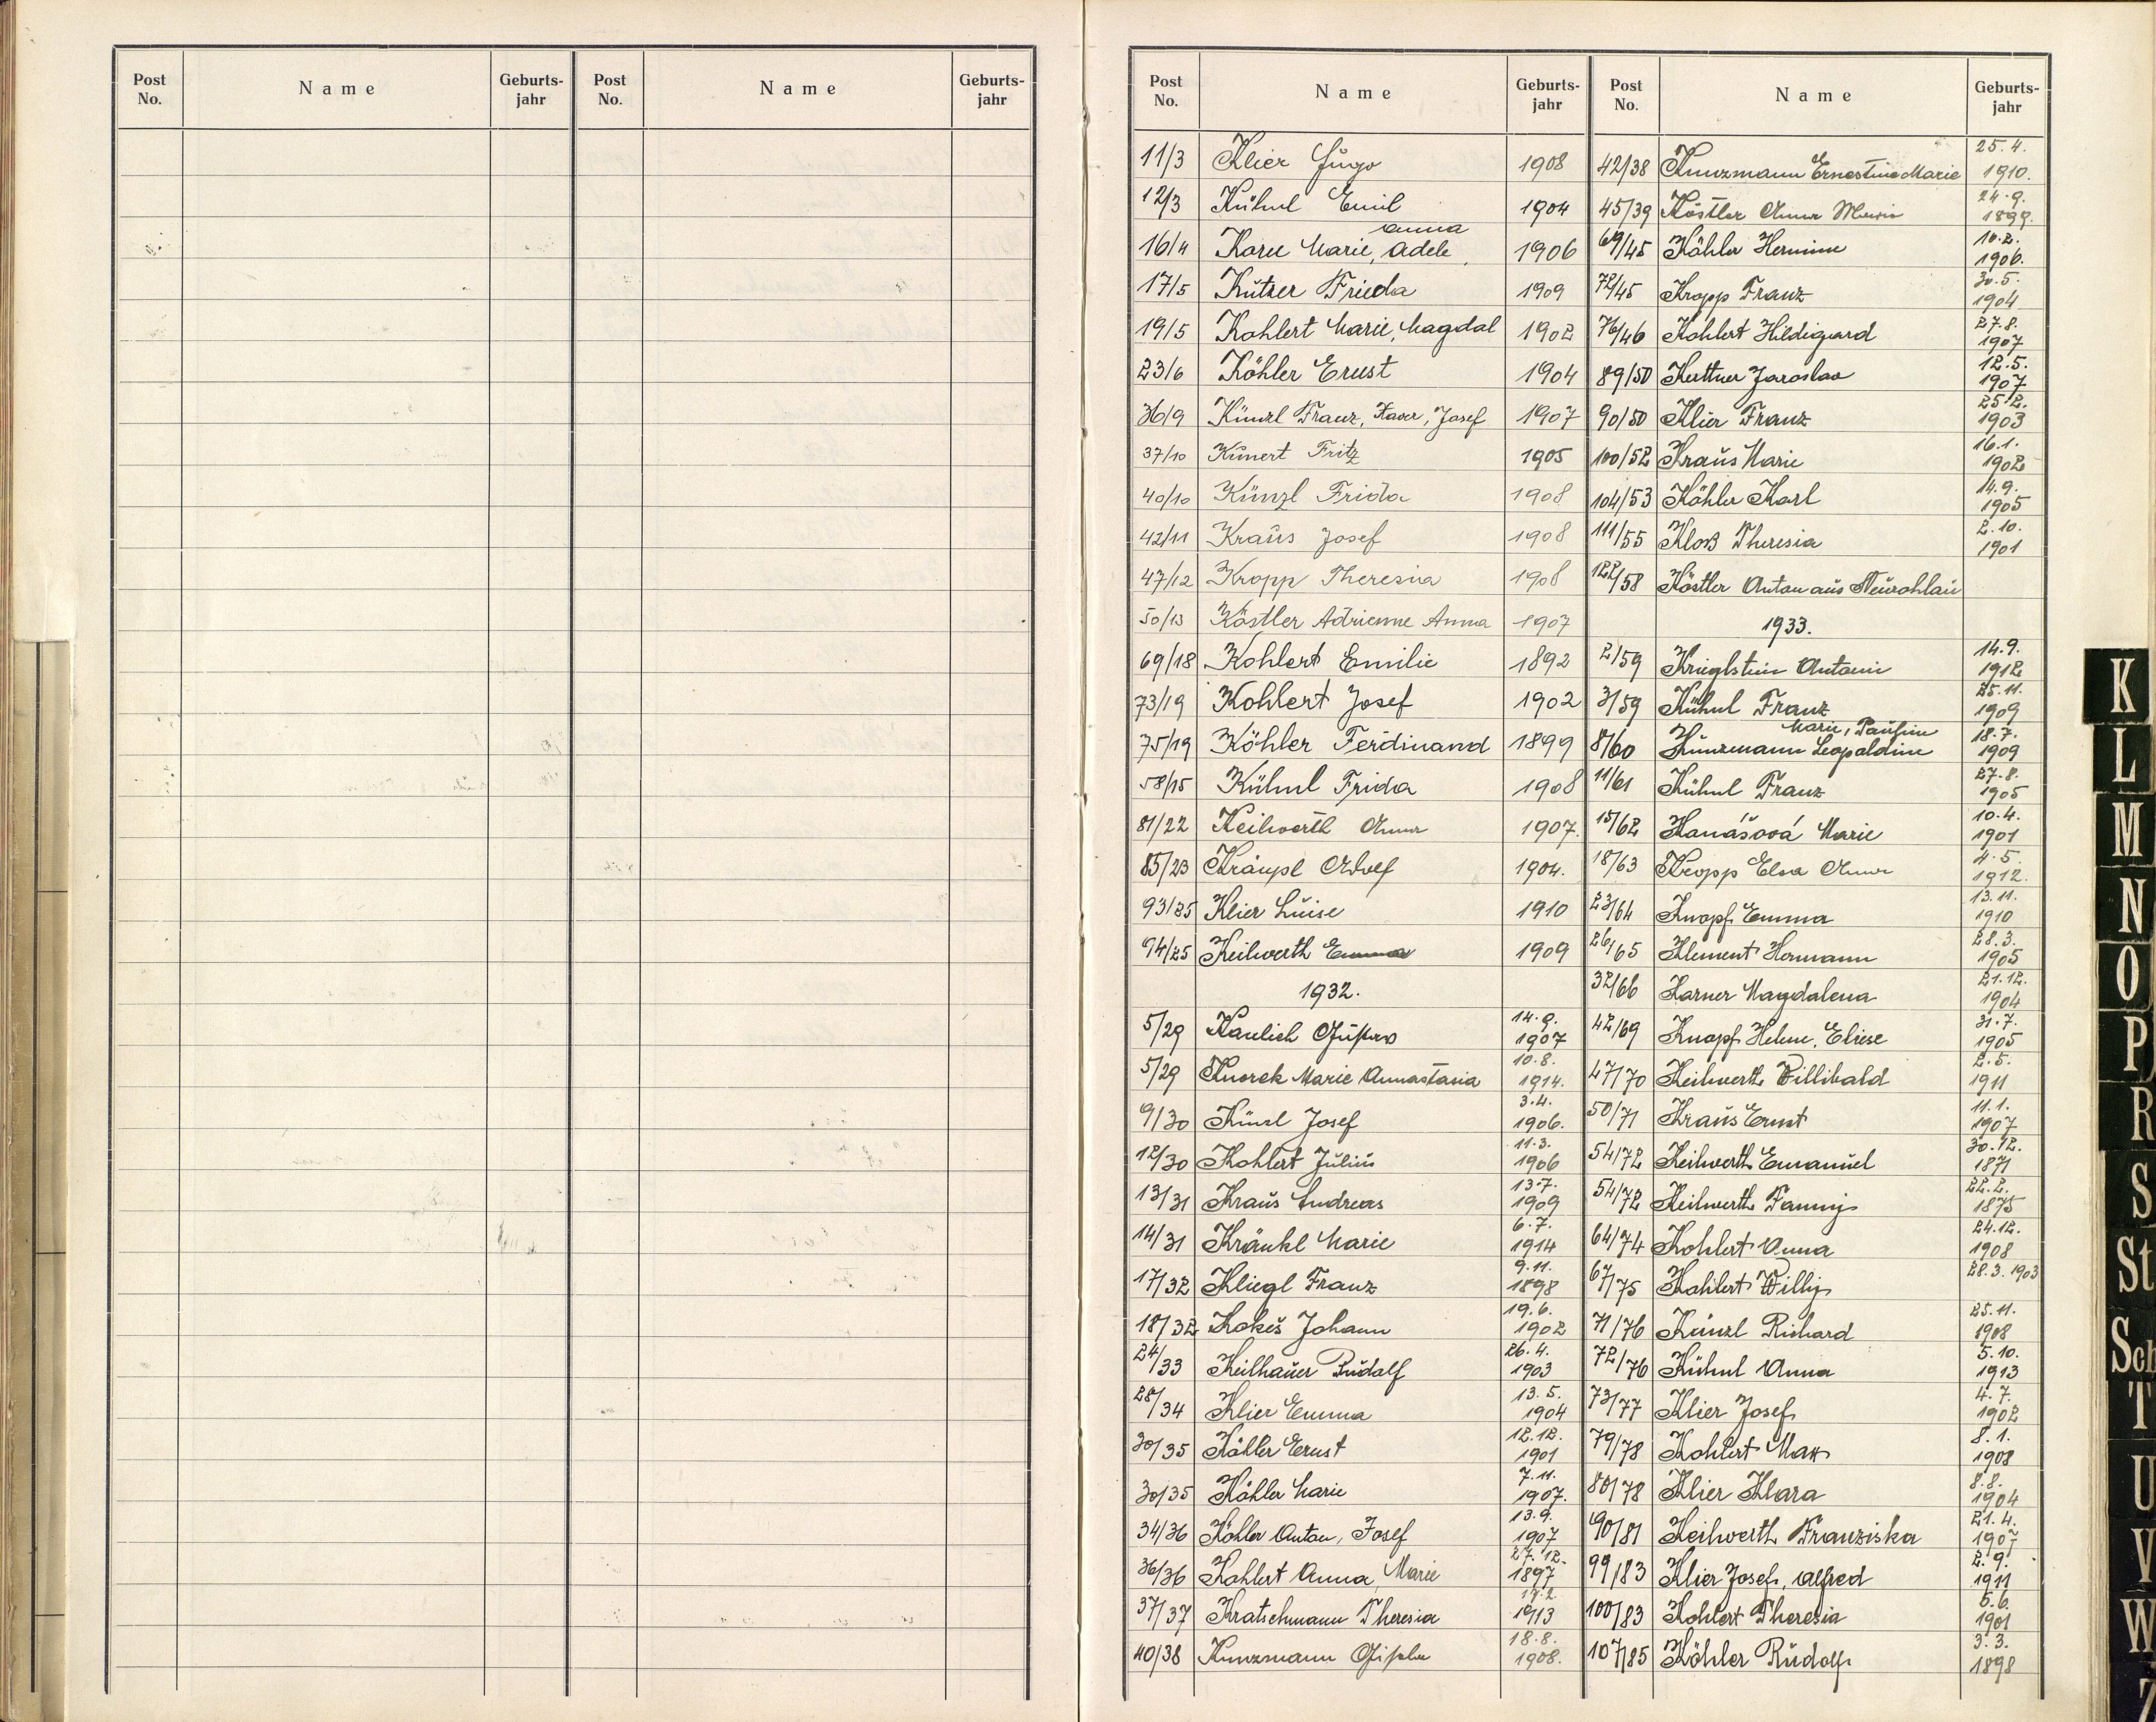 Post No. Name Geburts-jahr Post No. Name Geburts-jahr
Post No. Name Geburts-jahr Post No. Name Geburts-jahr
11/3 Klier Hugo 1908
12/3 Kühnl Emil 1904
16/4 Korn Marie, Adele, Anna 1906
17/5 Kutzer Frieda 1909
19/5 Kohlert Marie, Magdal 1902
23/6 Köhler Ernst 1904
36/9 Künzl Franz, Xaver, Josef 1907
37/10 Kunert Fritz 1905
40/10 Künzl Frida 1908
42/11 Kraus Josef 1908
47/12 Kropp Theresia 1908
50/13 Köstler Adrienne Anna 1907
69/18 Kohlert Emilie 1892
73/19 Kohlert Josef 1902
75/19 Köhler Ferdinand 1899
58/15 Kühnl Frida 1908
81/22 Keilwerth Anna 1907.
85/23 Kräupl Adolf 1904.
93/25 Klier Luise 1910
94/25 Keilwerth Emma 1909
1932.
5/29 Kaulich Gustav 14.9. 1907
5/29 Knorek Marie Annastasia 10.8. 1914.
9/30 Künzl Josef 3.4. 1906.
12/30 Kohlert Julius 11.3. 1906
13/31 Kraus Andreas 13.7. 1909
14/31 Kränkl Marie 6.7. 1914
17/32 Kliegl Franz 9.11. 1898
18/32 Kokeš Johann 19.6. 1902
24/33 Keilhauer Rudolf 26.4. 1903
28/34 Klier Emma 13.5. 1904
30/35 Köhler Ernst 12.12. 1901
30/35 Köhler Marie 7.11. 1907.
34/36 Köhler Anton, Josef 13.9. 1907
36/36 Kohlert Anna, Marie 27.12. 1897
37/37 Kratschmann Theresia 17.2. 1913
40/38 Kunzmann Gisela 18.8. 1908.
42/38 Kunzmann Ernestine Marie 25.4. 1910.
45/39 Köstler Anna Maria 24.9. 1899.
69/45 Köhler Hermine 10.2. 1906.
72/45 Kropp Franz 30.5. 1904
76/46 Kohlert Hildegard 27.8. 1907
89/50 Kuttner Jaroslav 12.5. 1907
90/50 Klier Franz 25.2. 1903
100/52 Kraus Marie 16.1. 1902
104/53 Köhler Karl 14.9. 1905
111/55 Kloß Theresia 2.10. 1901
122/58 Köstler Anton aus Neurohlau
1933.
2/59 Krieglstein Antonin 14.9. 1912
3/59 Kühnl Franz 25.11. 1909
8/60 Kunzmann Leopoldine Marie, Pauline 18.7. 1909
11/61 Kühnl Franz 27.8. 1905
15/62 Kanášová Marie 10.4. 1901
18/63 Kropp Elsa Anna 4.5. 1912.
23/64 Knopf Emma 13.11. 1910
26/65 Klement Hermann 28.3. 1905
32/66 Karner Magdalena 21.12. 1904
42/69 Knopf Helene, Eliese 31.7. 1905
47/70 Keilwerth Willibald 2.5. 1911
50/71 Kraus Ernst 11.1. 1907
54/72 Keilwerth Emanuel 30.12. 1871
54/72 Keilwerth Fanny 22.2. 1875
64/74 Kohlert Anna 24.12. 1908
67/75 Kohlert Willy 28.3.1903
71/76 Künzl Richard 25.11. 1908
72/76 Kühnl Anna 5.10. 1913
73/77 Klier Josef 4.7. 1902
79/78 Kohlert Max 8.1. 1908
80/78 Klier Klara 8.8. 1904
90/81 Keilwerth Franziska 21.4. 1907
99/83 Klier Josef, Alfred 2.9. 1911
100/83 Kohlert Theresia 5.6. 1901
107/85 Köhler Rudolf 3.3. 1898
K
L
M
N
O
P
R
S
St
Sch
T
U
V
W
Z